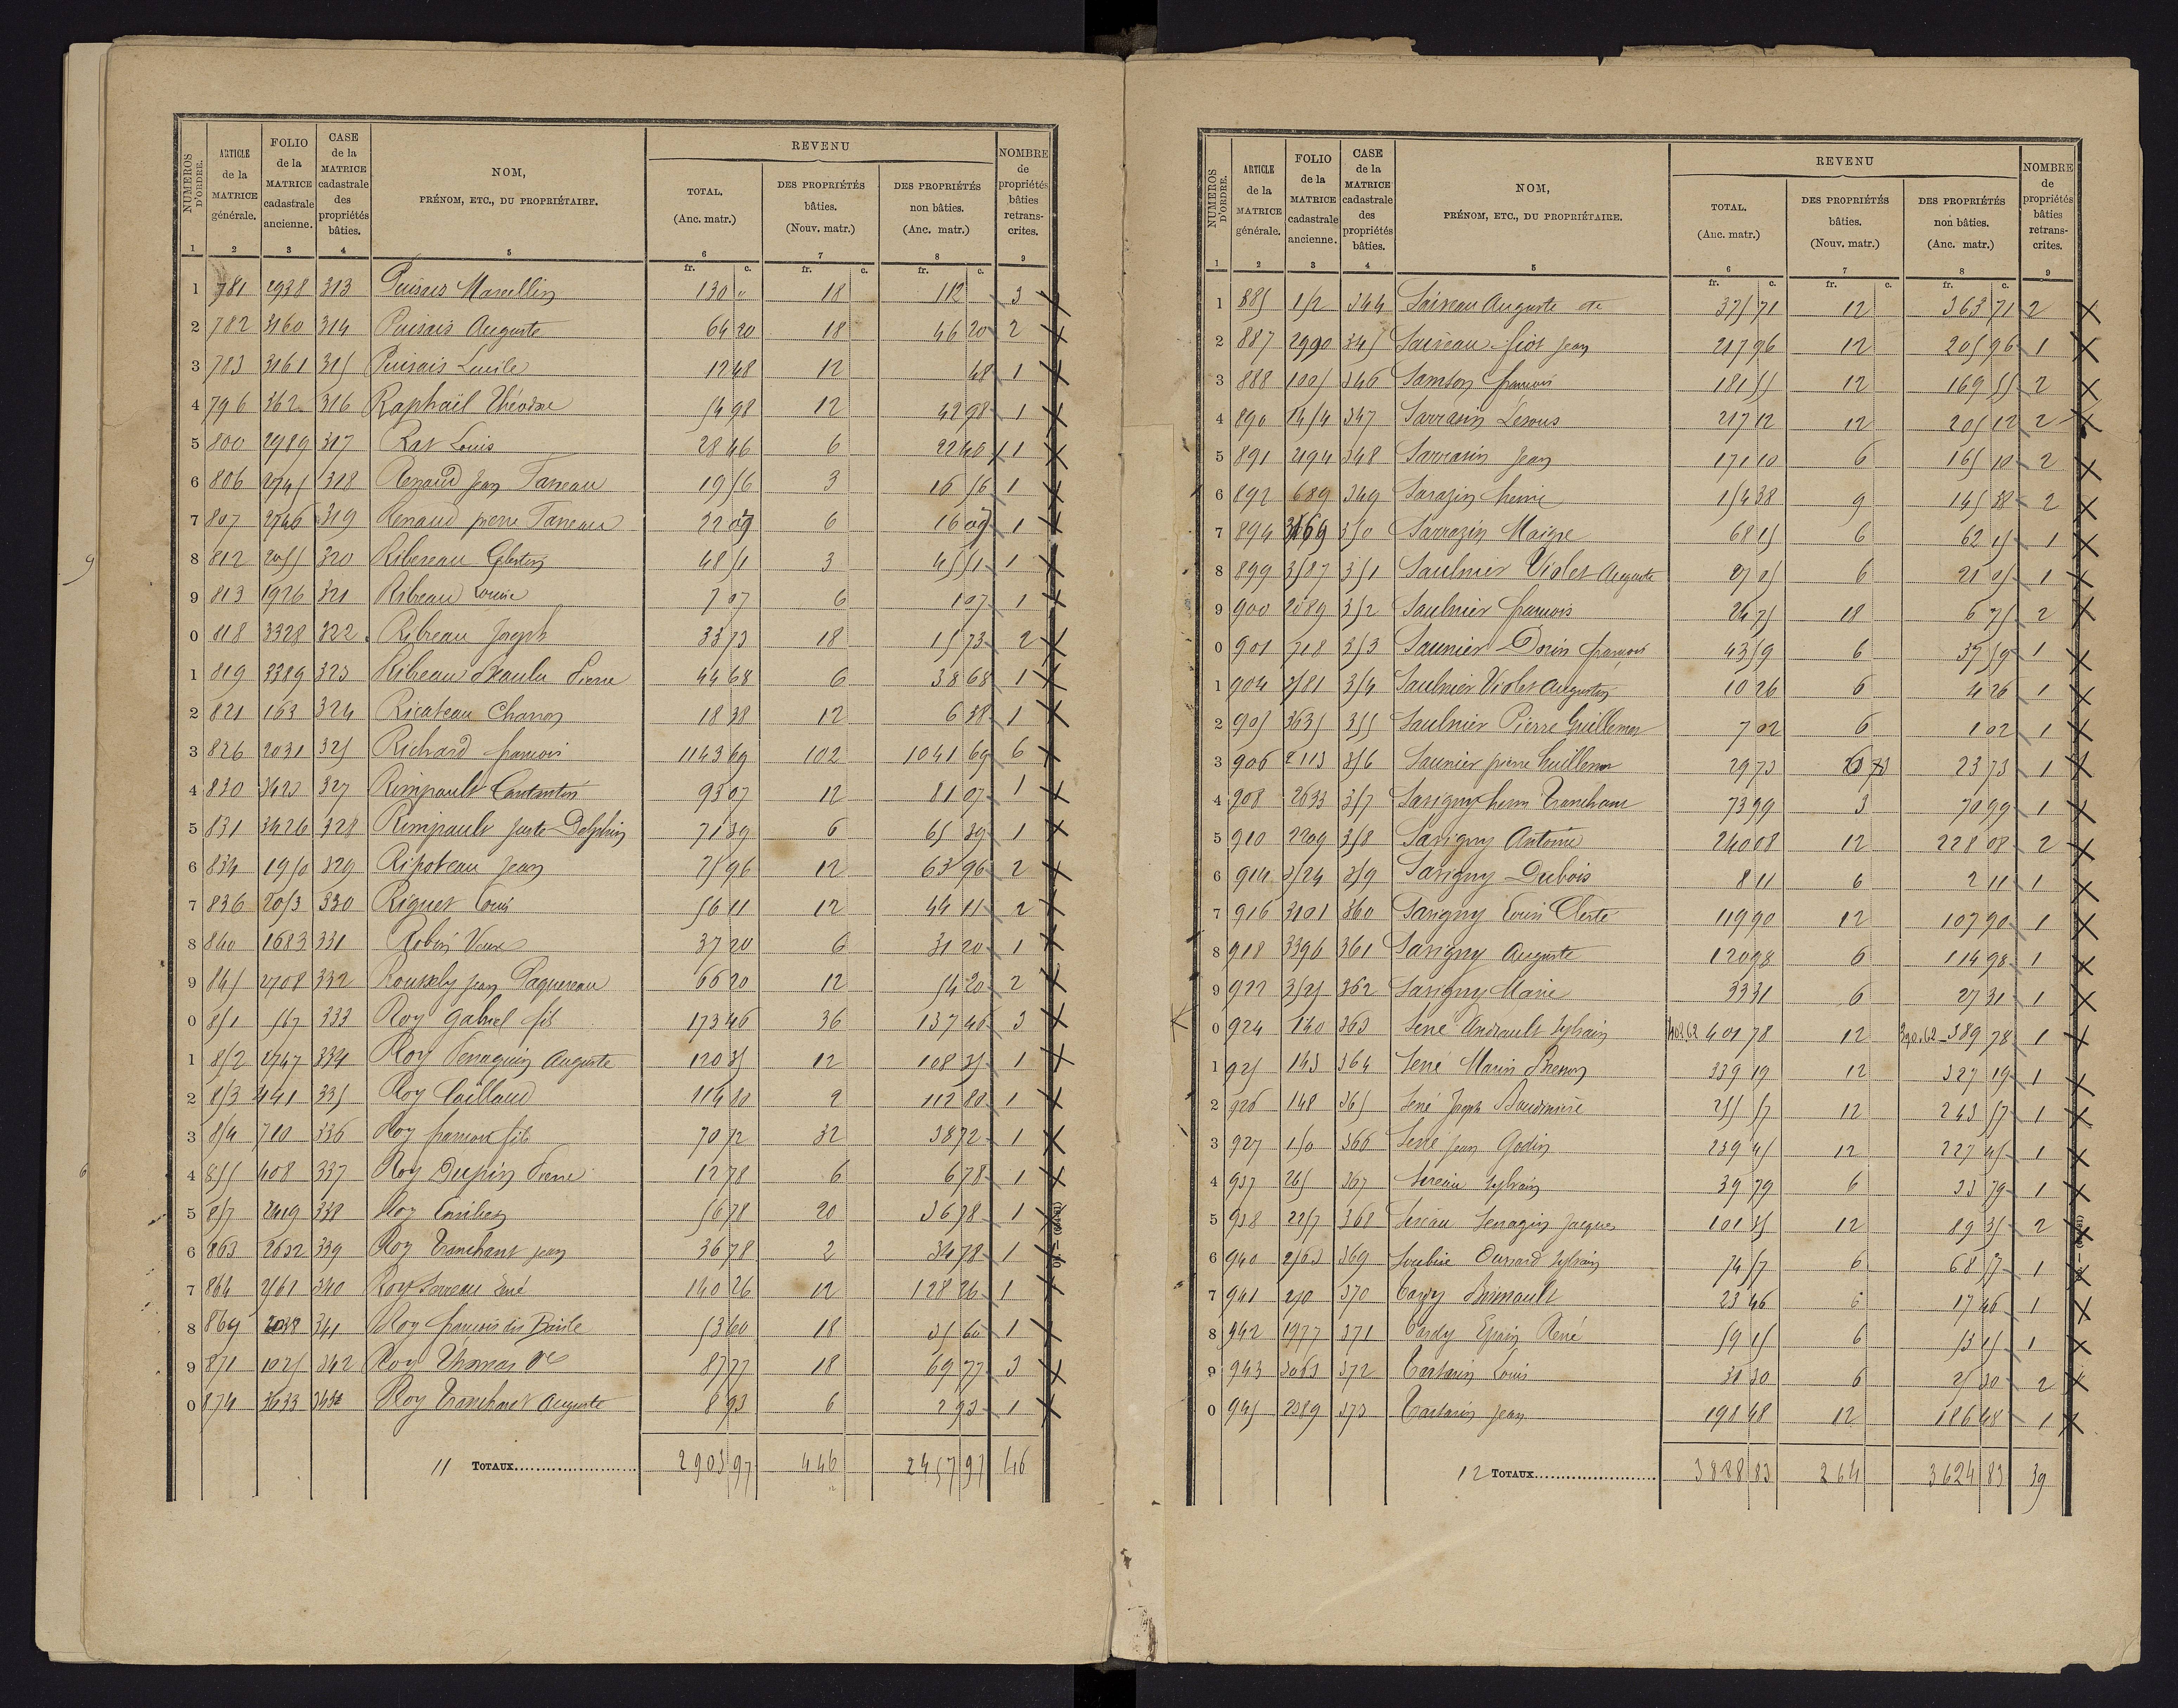 NUMEROS D'ORDRE. | ARTICLE de la MATRICE générale. | FOLIO de la MATRICE cadastrale ancienne. | CASE de la MATRICE cadastrale des propriétés bâties. | NOM, PRÉNOM, ETC., DU PROPRIÉTAIRE. | REVENU | NOMBRE de propriétés bâties retrans-crites.
TOTAL. (Anc. matr.) | DES PROPRIÉTÉS bâties. (Nouv. matr.) | DES PROPRIÉTÉS non bâties. (Anc. matr.)
1 2 3 4 5 6 7 8 9
fr. c. fr. c. fr. c.
1 781 2938 313 Puisais Marcellin 130 " 18 112 3 X
2 782 3160 314 Puisais Auguste 64 20 18 46 20 2 X
3 783 3161 315 Puisais Lucile 12 48 12 48 1 X
4 796 362 316 Raphaël Théodore 54 98 12 42 98 1 X
5 800 2989 317 Rat Louis 28 46 6 22 46 1 X
6 806 2745 318 Renaud Jean Taneau 19 56 3 16 56 1 X
7 807 2746 319 Renaud pierre Taneau 22 09 6 16 09 1 X
8 812 2055 320 Ribereau Célestin 48 51 3 45 51 1 X
9 813 1926 321 Ribeau Louise 7 07 6 1 07 1 X
0 818 3328 322 Ribreau Joseph 33 73 18 15 73 2 X
1 819 3389 323 Ribeau Pierre 44 68 6 38 68 1 X
2 821 163 324 Ricateau Charron 18 38 12 6 38 1 X
3 826 2031 325 Richard francois 1143 69 102 1041 69 6 X
4 830 3423 327 Rimpault Constantin 93 07 12 81 07 1 X
5 831 3426 328 Rimpault Juste Delphin 71 39 6 65 39 1 X
6 834 1950 329 Ripoteau Jean 75 96 12 63 96 2 X
7 836 2053 330 Riquet Louis 56 11 12 44 11 2 X
8 840 1683 331 Robin Veuve 37 20 6 31 20 1 X
9 845 2708 332 Rousely Jean Paquereau 66 20 12 54 20 2 X
0 851 567 333 Roy Gabriel fils 173 46 36 137 46 3 X
1 852 2747 334 Roy Senaguin Auguste 120 35 12 108 35 1 X
2 853 441 335 Roy Caillaud 114 80 2 112 80 1 X
3 854 710 336 Roy francois fils 70 72 32 38 72 1 X
4 855 408 337 Roy Dupin Pierre 12 78 6 6 78 1 X
5 857 2419 338 Roy 56 78 20 36 78 1 X
6 863 2632 339 Roy Tranchant Jean 36 78 2 34 78 1 X
7 864 2561 340 Roy Sarreau René 140 26 12 128 26 1 X
8 869 341 Roy francois dit 53 60 18 35 60 1 X
9 871 1025 342 Roy Thomas 87 77 18 69 77 3 X
0 874 3633 343 Roy Tranchant Auguste 8 93 6 2 93 1 X
11 TOTAUX 2903 97 446 2457 97 46
NUMEROS D'ORDRE. | ARTICLE de la MATRICE générale. | FOLIO de la MATRICE cadastrale ancienne. | CASE de la MATRICE cadastrale des propriétés bâties. | NOM, PRÉNOM, ETC., DU PROPRIÉTAIRE. | REVENU | NOMBRE de propriétés bâties retrans-crites.
TOTAL. (Anc. matr.) | DES PROPRIÉTÉS bâties. (Nouv. matr.) | DES PROPRIÉTÉS non bâties. (Anc. matr.)
1 2 3 4 5 6 7 8 9
fr. c. fr. c. fr. c.
1 885 152 344 Saireau Auguste 375 71 12 363 71 2 X
2 887 2990 345 Saireau fiot Jean 217 96 12 205 96 1 X
3 888 1005 346 Samson francois 181 55 12 169 55 2 X
4 890 1454 347 Sarrasin Lesous 217 12 12 205 12 2 X
5 891 2194 348 Sarrasin Jean 171 10 6 165 10 2 X
6 892 689 349 Sarazin henri 154 38 9 145 38 2 X
7 894 3569 350 Sarrazin Maigre 68 15 6 62 15 1 X
8 899 3587 351 Saulnier Violet Auguste 27 05 6 21 05 1 X
9 900 2089 352 Saulnier francois 24 75 18 6 75 2 X
0 901 718 353 Saunier Dorin francois 43 59 6 37 59 1 X
1 904 2581 354 Saulnier Violet Augustin 10 26 6 4 26 1 X
2 905 3635 355 Saulnier Pierre Guillemot 7 02 6 1 02 1 X
3 906 2113 356 Saunier pierre Guillemot 29 73 6 23 73 1 X
4 908 2633 357 Savigny henri Tranchant 73 99 3 70 99 1 X
5 910 2209 358 Savigny Antoine 240 08 12 228 08 2 X
6 914 2524 359 Savigny Dubois 8 11 6 2 11 1 X
7 916 3101 360 Savigny Louis Clerté 119 90 12 107 90 1 X
8 918 3396 361 Savigny Auguste 120 98 6 114 98 1 X
9 922 3525 362 Savigny Marie 33 31 6 27 31 1 X
0 924 140 363 Sené Andrault Sylvain 402.62 401 78 12 390.62 389 78 1 X
1 925 143 364 Sené Marin Bresson 339 19 12 327 19 1 X
2 926 148 365 Sené Joseph Baudinière 255 57 12 243 57 1 X
3 927 150 366 Sené Jean Godin 239 45 12 227 45 1 X
4 937 265 367 Sireau Sylvain 39 79 6 33 79 1 X
5 938 2257 368 Sireau Senagin Jacques 101 35 12 89 35 2 X
6 940 2503 369 Soubise Durand Sylvain 74 57 6 68 57 1 X
7 941 370 Tardy Brinault 23 46 6 17 46 1 X
8 942 1977 371 Tardy Epain René 59 15 6 53 15 1 X
9 943 3063 372 Tartarin Louis 31 30 6 25 30 2 X
0 945 2389 373 Tartarin Jean 198 48 12 186 48 1 X
12 TOTAUX 3888 83 264 3624 83 39